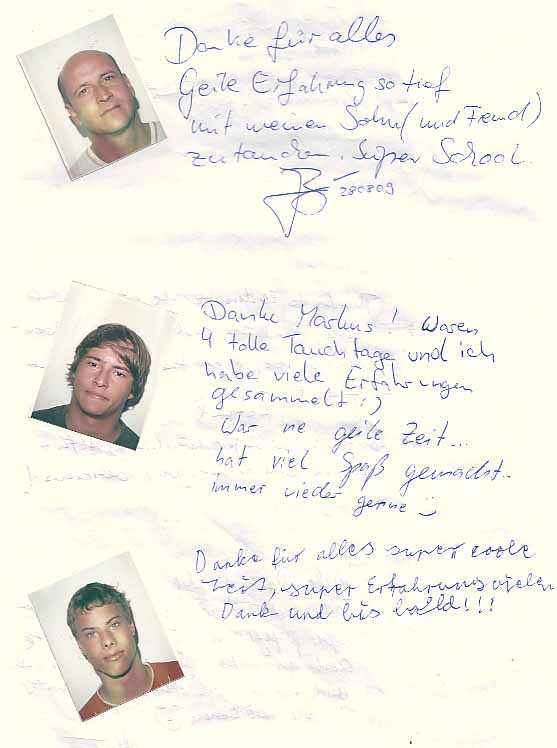 Danke für alles
Geile Erfahrung so tief
mit meinen Sohn (und Freund)
zutauchen. Super School.
280809
Danke Markus! Waren
4 tolle Tauchtage und ich
habe viele Erfahrungen
gesammelt :)
War ne geile Zeit...
hat viel Spaß gemacht..
immer wieder gerne
Danke für alles super coole
Zeit, super Erfahrung vielen
Dank und bis bald!!!